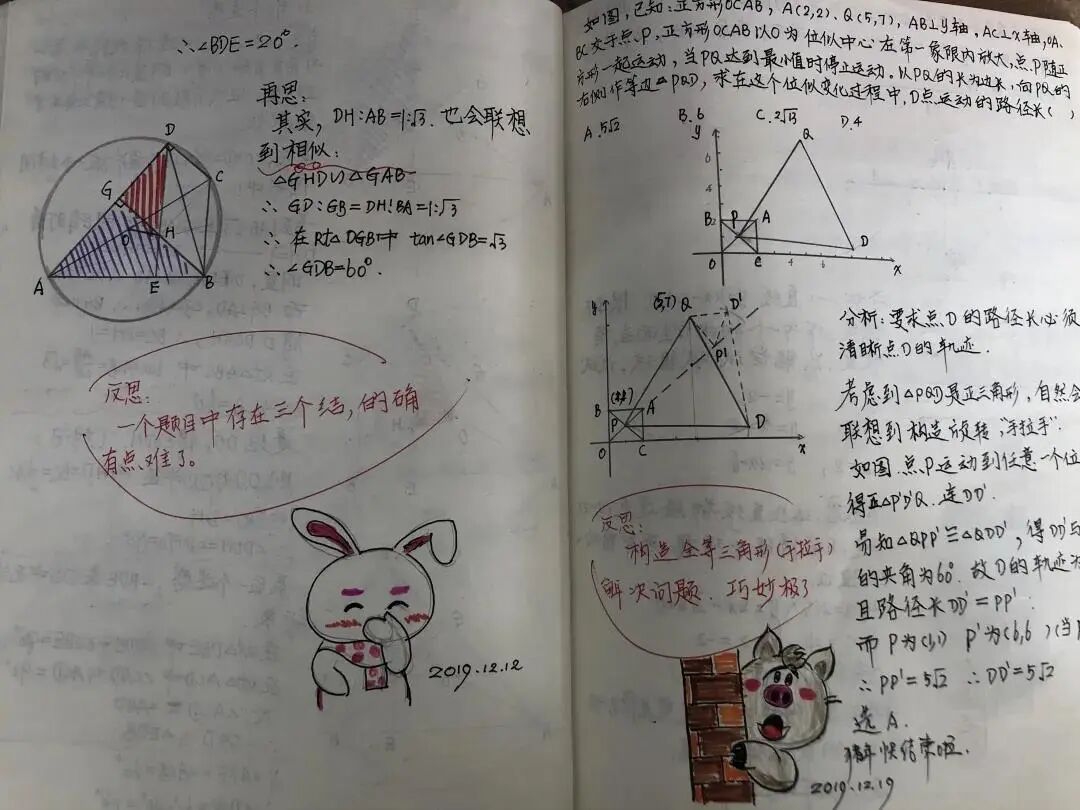 ∴∠BDE=20°.
再思:
其实, DH:AB=1:√3. 也会联想
到相似:
△GHD∽△GAB
∴ GD:GB=DH:BA=1:√3
∴ 在Rt△DGB中 tan∠GDB=√3
∴ ∠GDB=60°.
D
G
C
O
H
A
E
B
反思:
一个题目中存在三个结, 的确
有点难了。
2019.12.12
如图, 已知:正方形OCAB, A(2,2), Q(5,7), AB⊥y轴, AC⊥x轴, OA、
BC交于点P, 正方形OCAB以O为位似中心在第一象限内放大, 点P随正
方形一起运动, 当PQ达到最小值时停止运动. 以PQ的长为边长, 向PQ的
右侧作等边△PQD, 求在这个位似变化过程中, D点运动的路径长( )
A.5√2 B.6 C.2√13 D.4
y
Q
6
4
2
B
P
A
D
O
C
4
6
x
y
(5,7)
Q
D'
P'
(2,2)
B
A
P
D
O
C
x
分析:要求点D的路径长必须
清晰点D的轨迹.
考虑到△PQD是正三角形, 自然会
联想到构造旋转,"手拉手".
如图.点P运动到任意一个位
得正△P'D'Q. 连DD'.
易知△QPP'≌△QDD', 得DD'与
的夹角为60°. 故D的轨迹为
且路径长DD'=PP'.
而P为(1,1) P'为(6,6)(当P
∴ PP'=5√2 ∴DD'=5√2
选A.
反思:
构造全等三角形(手拉手)
解决问题. 巧妙极了
猪年快结束啦.
2019.12.19